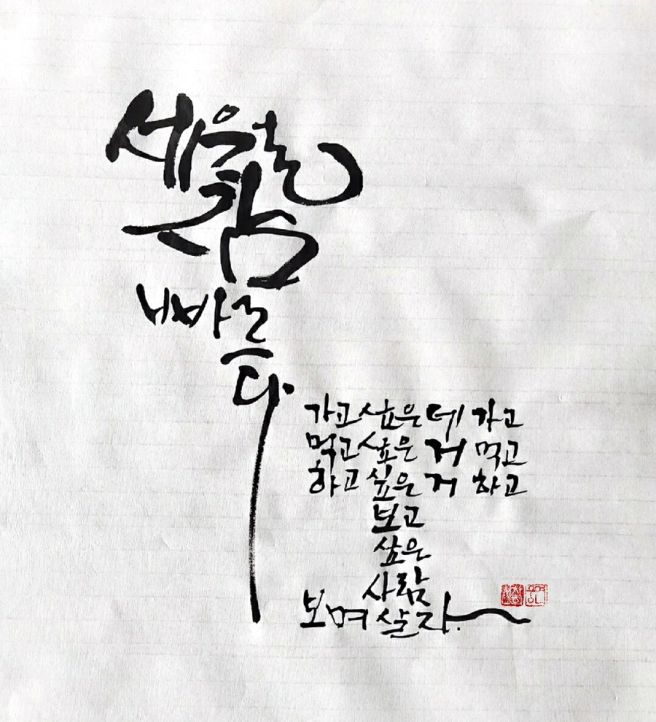 세월
참
빠르
다
가고싶은데 가고
먹고싶은 거 먹고
하고 싶은 거 하고
보고
싶은
사람
보며 살자.